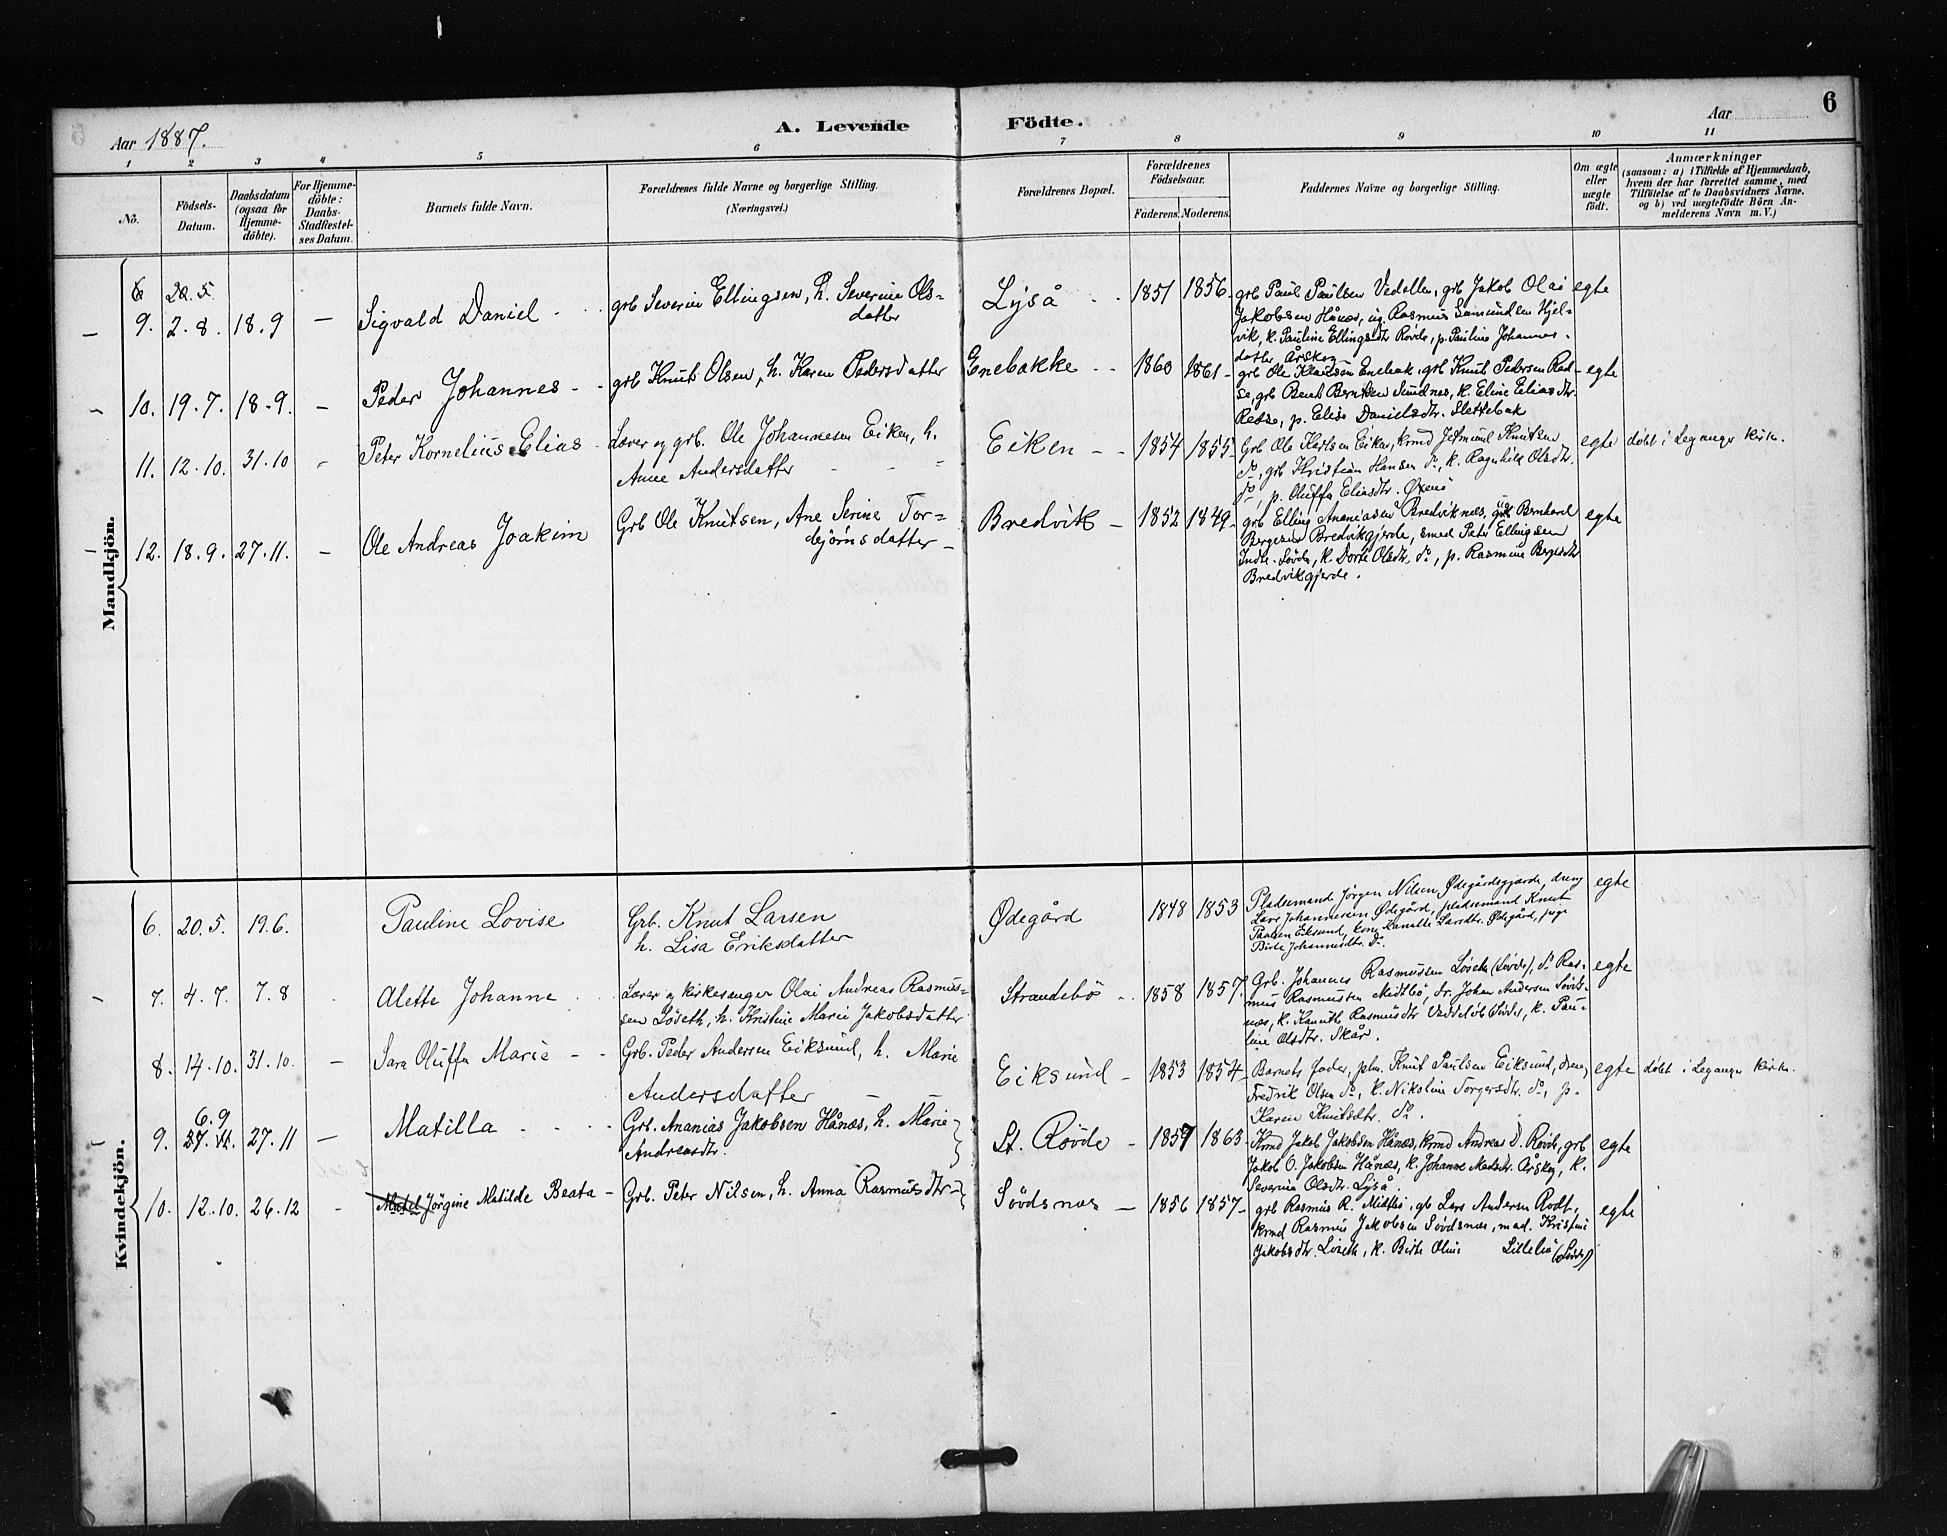 6
Aar 1887.
A. Levende Födte.
Aar
1 2 3 4 5 6 7 8 9 10 11
No.
Födsels-Datum.
Daabsdatum (ogsaa for Hjemme-döbte).
For Hjemme-döbte: Daabs-Stadfæstel-ses Datum.
Barnets fulde Navn.
Forældrenes fulde Navne og borgerlige Stilling.
(Næringsvei.)
Forældrenes Bopæl.
Forældrenes Födselsaar.
Faderens. Moderens.
Faddernes Navne og borgerlige Stilling.
Om ægte eller uægte födt.
Anmærkninger
(saasom: a) i Tilfælde af Hjemmedaab,
hvem der har forrettet samme, med
Tilföielse af to Daabsvidners Navne,
og b) ved uægtefödte Börn An-
melderens Navn m. V.)
Mandkjön.
9. 2.8. 18.9 — Sigvald Daniel
grb Severin Ellingsen, h. Severine Ols=
datter
Lyså 1851 1856
grb Paul Paulsen Vedellen, grb Jakob Olai
Jakobsen Hånæs, ug. Rasmus Samundsen Hjel=
vik, k. Pauline Ellingsdtr Røvde, p. Pauline Johannes-
datter Årskog
egte
10. 19.7. 18.9. — Peder Johannes
grb Knut Olsen, h. Karen Pedersdatter
Enebakke 1860 1861
grb Ole Enebak, grb Knut Pedersen Red-
se, grb Bent Berntsen Sundnes, k. Eline Eliasdtr.
Redse, p. Elise Danielsdtr. Slettebak
egte
11. 12.10. 31.10 Peter Kornelius Elias
Lærer og grb. Ole Johannesen Eiken, h.
Anne Andersdatter
Eiken 1854 1855
Grb Ole Karlsen Eiken, krmd Jetmund Knutsen
do, grb Kristian Hansen do, k. Ragnhild Olsdtr.
do, p. Oluffa Eliasdtr.
egte døbt i Leganger kirke.
12. 18.9. 27.11. — Ole Andreas Joakim
Grb Ole Knutsen, Ane Serine Tor=
bjørnsdatter
Bredvik 1852 1849
grb Elling Ananiasen Bredviknæs, Bernhard
Bergesen Bredvikgjerde, smed Peter Ellingsen
Indre-Søvde, k. Dorte Olsdtr. do, p. Rasmine Bergesdtr
Bredvikgjerde.
egte
Kvindekjön.
6. 20.5. 19.6. Pauline Lovise
Grb. Knut Larsen
h. Lisa Eriksdatter
Ødegård 1848 1853
Pladsemand Jørgen Nilsen, Ødegårdsgjærde, dreng
Lars Johannesen Ødegård, pladsemand Knut
Paulsen Eiksund, kone Larsdtr. Ødegård, pige
Birte Johannesdtr. do
egte
7. 4.7. 7.8 Alette Johanne
Lærer og kirkesanger Olai Andreas Rasmus=
sen Løseth, h. Kristine Marie Jakobsdatter
Strandebø 1858 1857.
Grb. Johannes Rasmussen Løseth (Søvde), do Ras-
mus Rasmussen Midtbø, dr. Johan Andersen Søvds-
næs, k. Rasmusdtr k. Pau-
line Olsdtr. Skår.
egte
8. 14.10. 31.10. — Sara Oluffa Marie
Grb. Peder Andersen Eiksund, h. Marie
Andersdatter
Eiksund 1853 1854
Barnets fader, plm. Knut Paulsen Eiksund, dreng
Fredrik Olsen do, k. Nikoline Torgersdtr. do, p.
Karen Knutsdtr. do.
egte døbt i Leganger kirke.
6.9
9. 27.11 — Matilla
Grb. Ananias Jakobsen Hånæs, h. Marie
Andreasdtr.
St. Røvde 1857 1863
Krmd Jakob Jakobsen Hånæs, krmd Andreas D. Røvde, grb
Jakob O. Jakobsen Hånæs, k. Johanne Madsdtr. Årskog, k.
Severine Olsdtr. Lyså.
egte
10. 12.10. 26.12 - Jørgine Matilde Beata
Grb. Peter Nilsen, h. Anna Rasmusdtr
Søvdsnæs 1856 1857
grb Rasmus R. Midtbø, gb Lars Andersen Rødt,
krmd Rasmus Jakobsen Søvdsnæs, mad. Kristine
Jakobsdtr. Løseth, k. Birte Oline Lillebø (Søvde)
egte